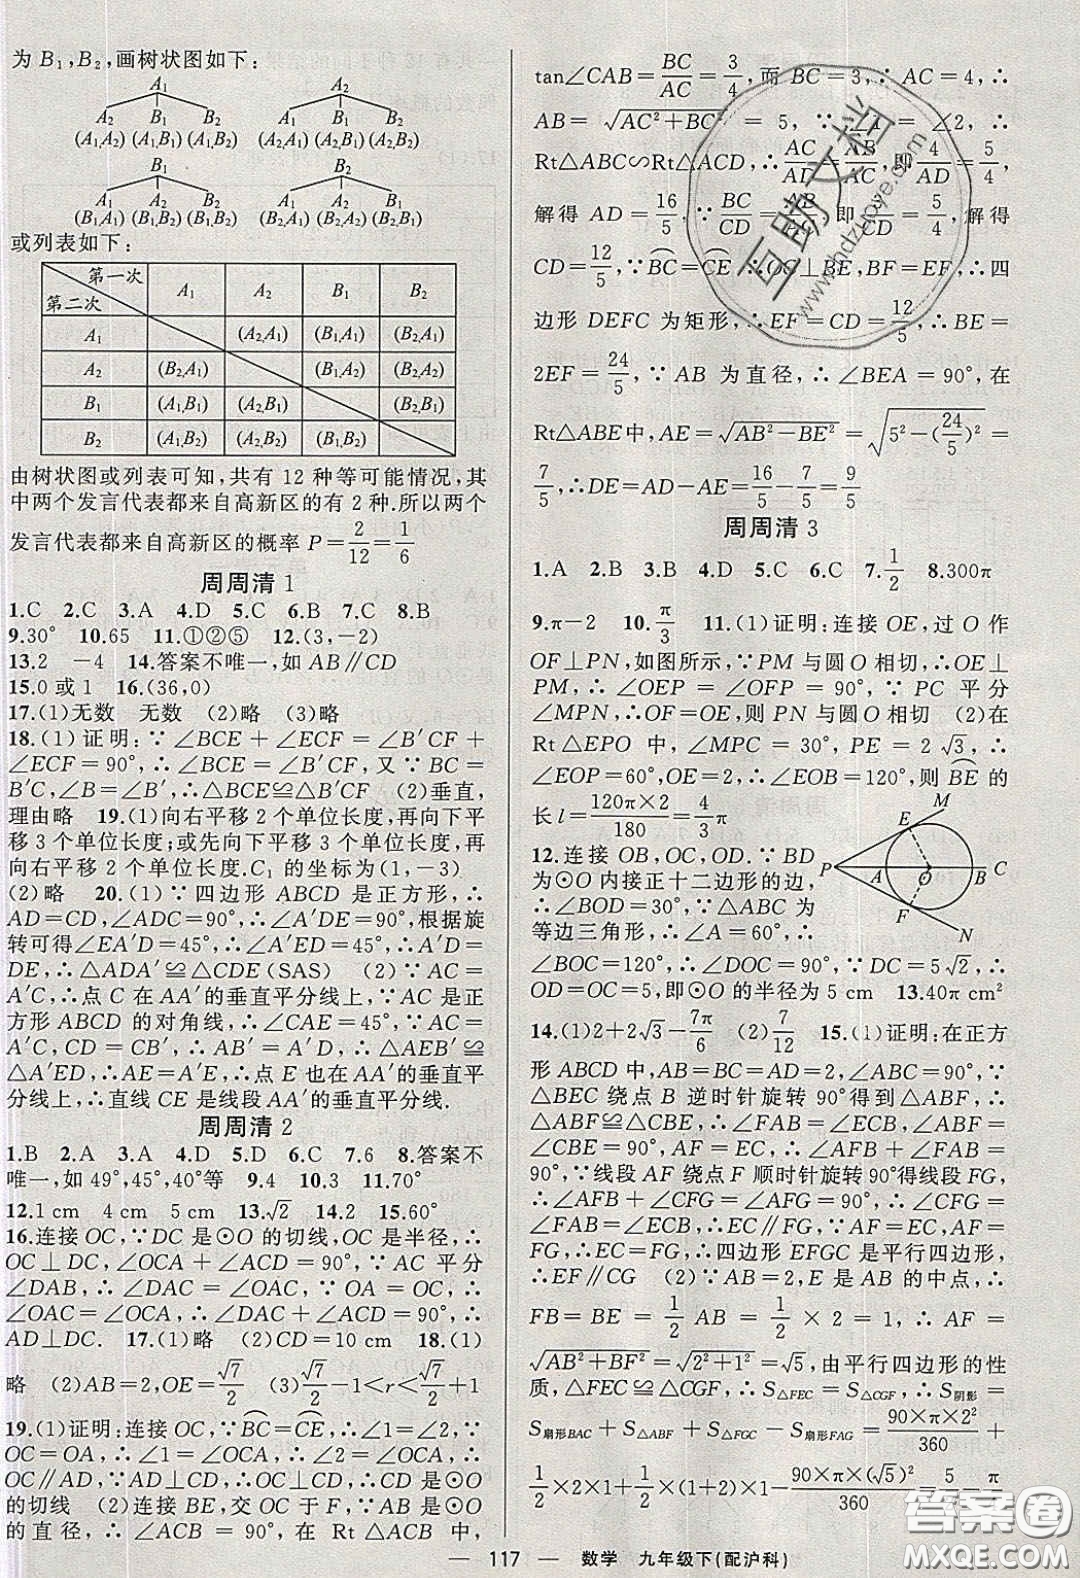 为 B₁,B₂,画树状图如下:
A₁ A₂
A₂ B₁ B₂ A₁ B₁ B₂
(A₁,A₂) (B₁,A₂) (A₁,B₂) (A₂,A₁) (A₂,B₁) (A₂,B₂)
B₁ B₂
A₁ A₂ B₂ A₁ A₂ B₁
(B₁,A₁) (B₁,A₂) (B₁,B₂) (B₂,A₁) (B₂,A₂) (B₂,B₁)
或列表如下:
第一次 第二次 A₁ A₂ B₁ B₂
A₁ (A₂,A₁) (B₁,A₁) (B₂,A₁)
A₂ (B₂,A₁) (B₁,A₂) (B₂,A₂)
B₁ (A₁,B₁) (A₂,B₁) (B₂,B₁)
B₂ (A₁,B₂) (A₂,B₂) (B₁,B₂)
由树状图或列表可知,共有 12 种等可能情况,其
中两个发言代表都来自高新区的有 2 种.所以两个
发言代表都来自高新区的概率 P=2/12=1/6
周周清 1
1.C 2.C 3.A 4.D 5.C 6.B 7.C 8.B
9.30° 10.65 11.①②⑤ 12.(3,-2)
13.2 -4 14.答案不唯一,如 AB∥CD
15.0 或 1 16.(36,0)
17.(1)无数 无数 (2)略 (3)略
18.(1)证明:∵∠BCE+∠ECF=∠B′CF+
∠ECF=90°,∴∠BCE=∠B′CF,又∵BC=
B′C,∠B=∠B′,∴△BCE≌△B′CF (2)垂直,
理由略 19.(1)向右平移 2 个单位长度,再向下平
移 3 个单位长度;或先向下平移 3 个单位长度,再
向右平移 2 个单位长度.C₁ 的坐标为(1,-3)
(2)略 20.(1)∵四边形 ABCD 是正方形,∴
AD=CD,∠ADC=90°,∴∠A′DE=90°,根据旋
转可得∠EA′D=45°,∴∠A′ED=45°,∴A′D=
DE,∴△ADA′≌△CDE(SAS) (2)∵AC=
A′C,∴点 C 在 AA′的垂直平分线上,∵AC 是正
方形 ABCD 的对角线,∴∠CAE=45°,∵AC=
A′C,CD=CB′,∴AB′=A′D,∴△AEB′≌
△A′ED,∴AE=A′E,∴点 E 也在 AA′的垂直平
分线上,∴直线 CE 是线段 AA′的垂直平分线.
周周清 2
1.B 2.A 3.A 4.D 5.D 6.C 7.6 8.答案不
唯一,如 49°,45°,40°等 9.4 10.3 11.70°
12.1 cm 4 cm 5 cm 13.√2 14.2 15.60°
16.连接 OC,∵DC 是⊙O 的切线,OC 是半径,∴
OC⊥DC,∴∠OCA+∠ACD=90°,∵AC 平分
∠DAB,∴∠DAC=∠OAC,∵OA=OC,∴
∠OAC=∠OCA,∴∠DAC+∠ACD=90°,∴
AD⊥DC. 17.(1)略 (2)CD=10 cm 18.(1)
略 (2)AB=2,OE=√7/2 (3)√7/2-1<r<√7/2+1
19.(1)证明:连接 OC,∵BC=CE,∴∠1=∠2,∵
OC=OA,∴∠1=∠OCA,∴∠2=∠OCA,∴
OC∥AD,∵AD⊥CD,∴OC⊥CD,∴CD 是⊙O
的切线 (2)连接 BE,交 OC 于 F,∵AB 是⊙O
的直径,∴∠ACB=90°,在 Rt△ACB 中,
tan∠CAB=BC/AC=3/4,而 BC=3,∴AC=4,∴
AB=√(AC²+BC²)=5,∵∠1=∠2,∴
Rt△ABC∽Rt△ACD,∴AC/AD=AB/AC,即4/AD=5/4,
解得 AD=16/5,∵BC/CD=AB/AC,即3/CD=5/4,解得
CD=12/5,∵BC=CE,∴OC⊥BE,BF=EF,∴四
边形 DEFC 为矩形,∴EF=CD=12/5,∴BE=
2EF=24/5,∵AB 为直径,∴∠BEA=90°,在
Rt△ABE中,AE=√(AB²-BE²)=√(5²-(24/5)²)=
7/5,∴DE=AD-AE=16/5-7/5=9/5
周周清 3
1.A 2.B 3.B 4.D 5.C 6.C 7.1/2 8.300π
9.π-2 10.π/3 11.(1)证明:连接 OE,过 O 作
OF⊥PN,如图所示,∵PM 与圆 O 相切,∴OE⊥
PM,∴∠OEP=∠OFP=90°,∵PC 平分
∠MPN,∴OF=OE,则 PN 与圆 O 相切 (2)在
Rt△EPO 中,∠MPC=30°,PE=2√3,∴
∠EOP=60°,OE=2,∴∠EOB=120°,则 BE 的
长 l=120π×2/180=4/3π
M E P A O B C F N
12.连接 OB,OC,OD.∵BD
为⊙O 内接正十二边形的边,
∴∠BOD=30°,∵△ABC 为
等边三角形,∴∠A=60°,∴
∠BOC=120°,∴∠DOC=90°,∵DC=5√2,∴
OD=OC=5,即⊙O 的半径为 5 cm 13.40π cm²
14.(1)2+2√3-7π/6 (2)7/12 15.(1)证明:在正方
形 ABCD 中,AB=BC=AD=2,∠ABC=90°,∵
△BEC 绕点 B 逆时针旋转 90°得到△ABF,∴
△ABF≌△CBE,∴∠FAB=∠ECB,∠ABF=
∠CBE=90°,AF=EC,∴∠AFB+∠FAB=
90°,∵线段 AF 绕点 F 顺时针旋转 90°得线段 FG,
∴∠AFB+∠CFG=∠AFG=90°,∴∠CFG=
∠FAB=∠ECB,∴EC∥FG,∵AF=EC,AF=
FG,∴EC=FG,∴四边形 EFGC 是平行四边形,
∴EF∥CG (2)∵AB=2,E 是 AB 的中点,∴
FB=BE=1/2AB=1/2×2=1,∴AF=
√(AB²+BF²)=√(2²+1²)=√5,由平行四边形的性
质,△FEC≌△CGF,∴S△FEC=S△CGF,∴S阴影=
S扇形BAC+S△ABF+S△FGC-S扇形FAG=90×π×2²/360+
1/2×2×1+1/2×(1+2)×1-90×π×(√5)²/360=5/2-π/4
— 117 — 数学 九年级下(配沪科)
互助文档
www.hdzuoye.com
答案圈
MXQE.COM